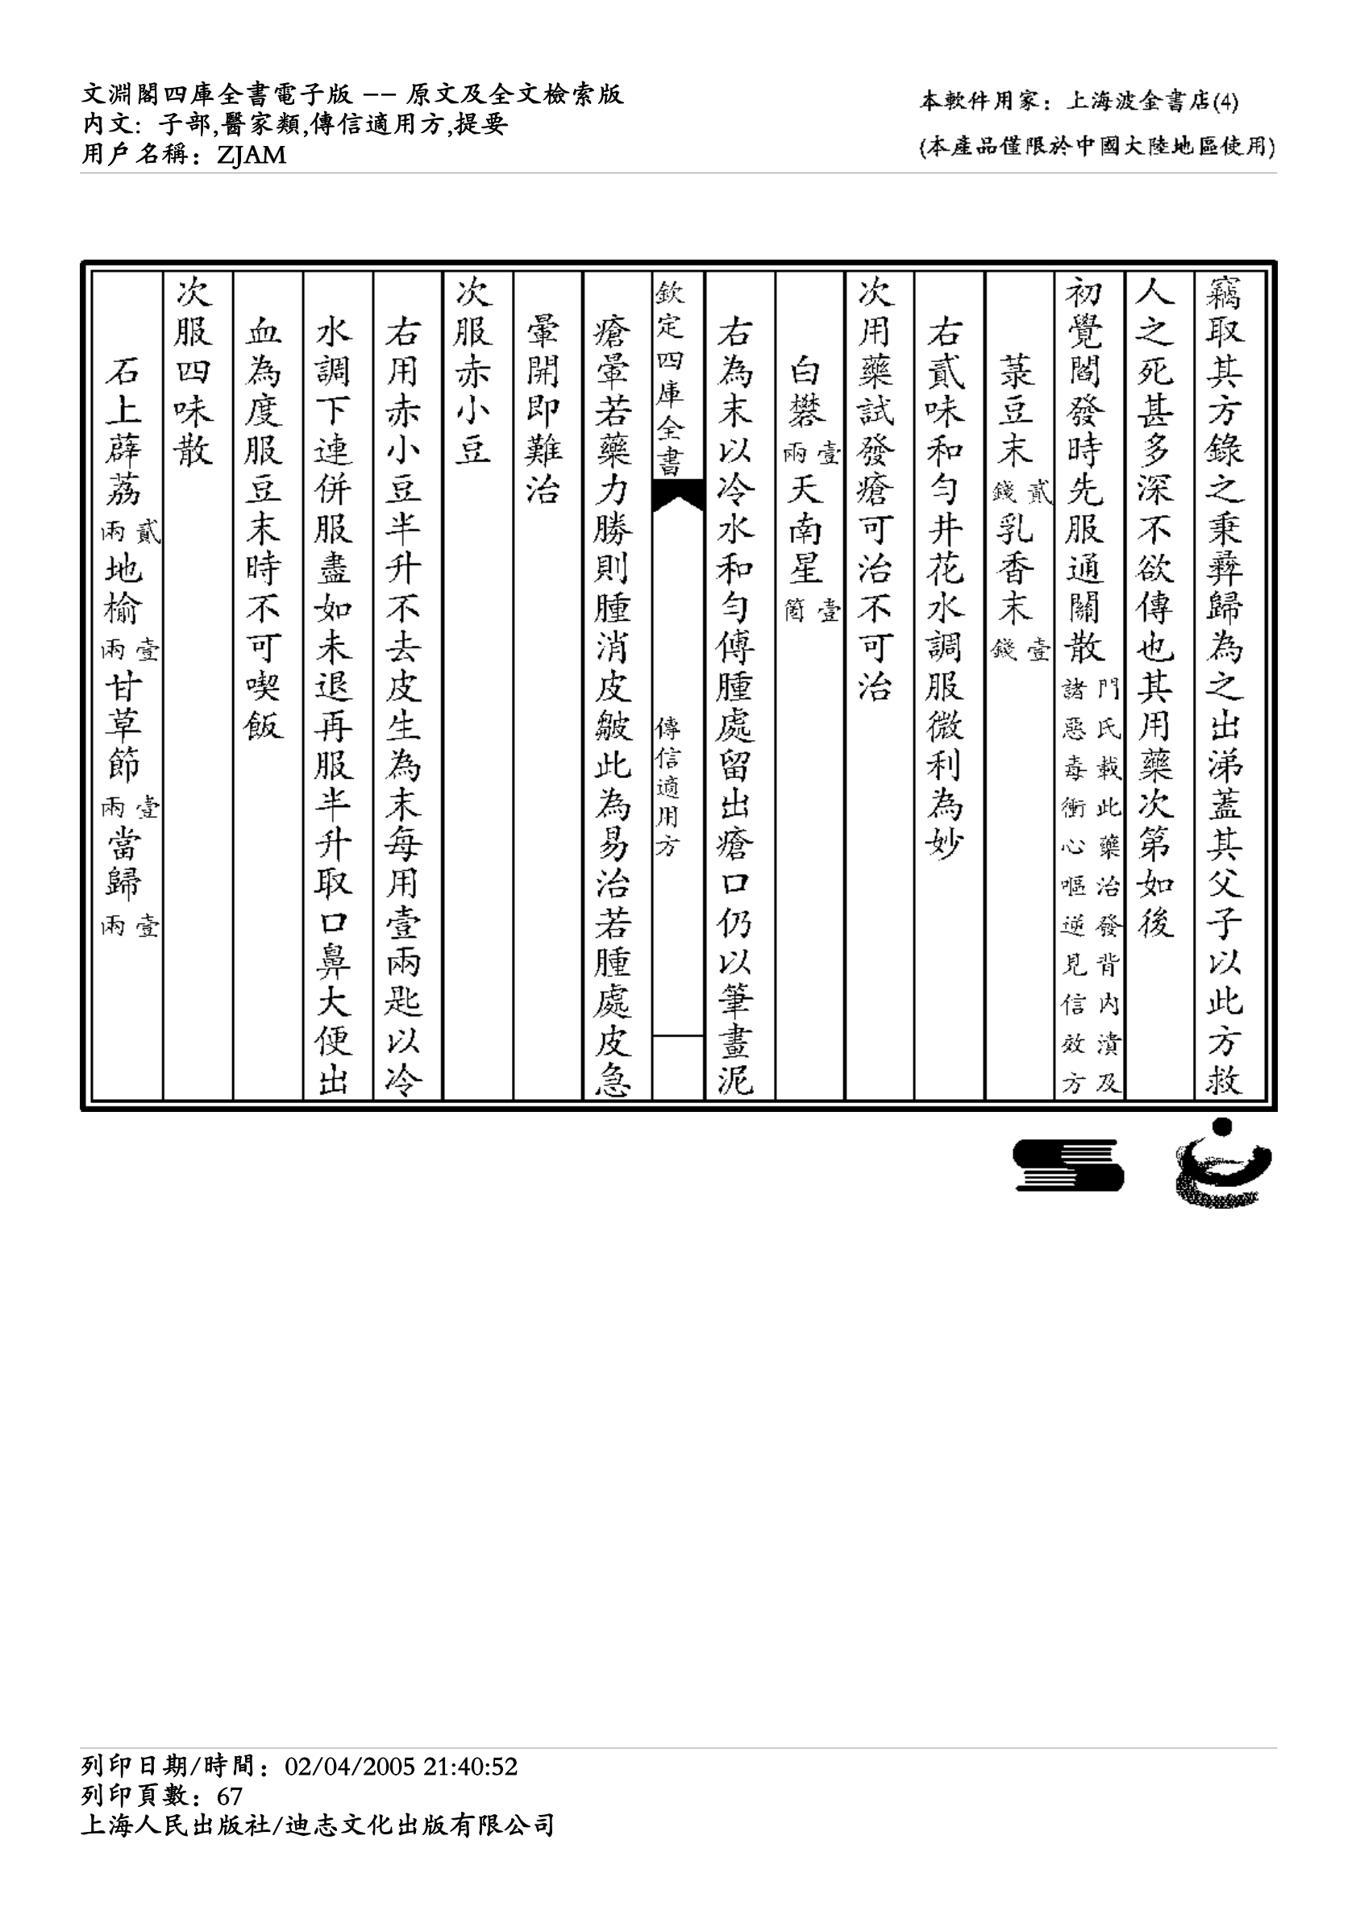 文淵閣四庫全書電子版 -- 原文及全文檢索版
內文: 子部,醫家類,傳信適用方,提要
用戶名稱: ZJAM
本軟件用家: 上海波金書店(4)
(本產品僅限於中國大陸地區使用)
竊取其方錄之秉彝歸為之出涕蓋其父子以此方救
人之死甚多深不欲傳也其用藥次第如後
初覺閻發時先服通關散門氏載此藥治發背內潰及諸惡毒衝心嘔逆見信效方
菉豆末貳錢乳香末壹錢
右貳味和勻井花水調服微利為妙
次用藥試發瘡可治不可治
白礬壹兩天南星壹箇
右為末以冷水和勻傅腫處留出瘡口仍以筆畫泥
欽定四庫全書
傳信適用方
瘡暈若藥力勝則腫消皮皺此為易治若腫處皮急
暈開即難治
次服赤小豆
右用赤小豆半升不去皮生為末每用壹兩匙以冷
水調下連併服盡如未退再服半升取口鼻大便出
血為度服豆末時不可喫飯
次服四味散
石上薜荔貳兩地榆壹兩甘草節壹兩當歸壹兩
列印日期/時間: 02/04/2005 21:40:52
列印頁數: 67
上海人民出版社/迪志文化出版有限公司